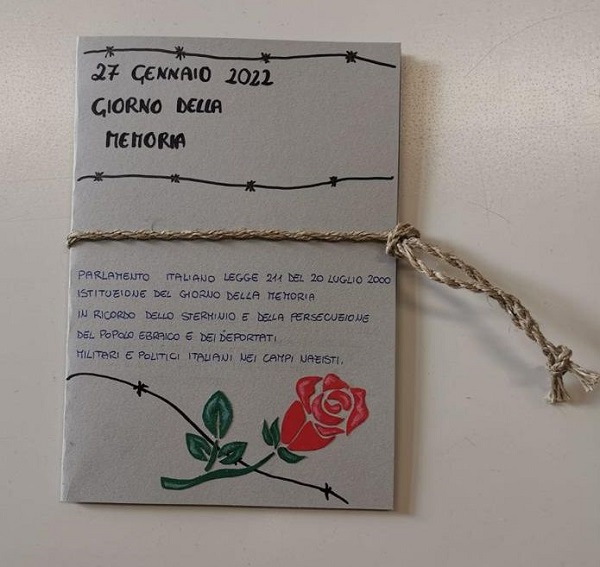 27 GENNAIO 2022
GIORNO DELLA
MEMORIA
PARLAMENTO ITALIANO LEGGE 211 DEL 20 LUGLIO 2000
ISTITUZIONE DEL GIORNO DELLA MEMORIA
IN RICORDO DELLO STERMINIO E DELLA PERSECUZIONE
DEL POPOLO EBRAICO E DEI DEPORTATI
MILITARI E POLITICI ITALIANI NEI CAMPI NAZISTI.